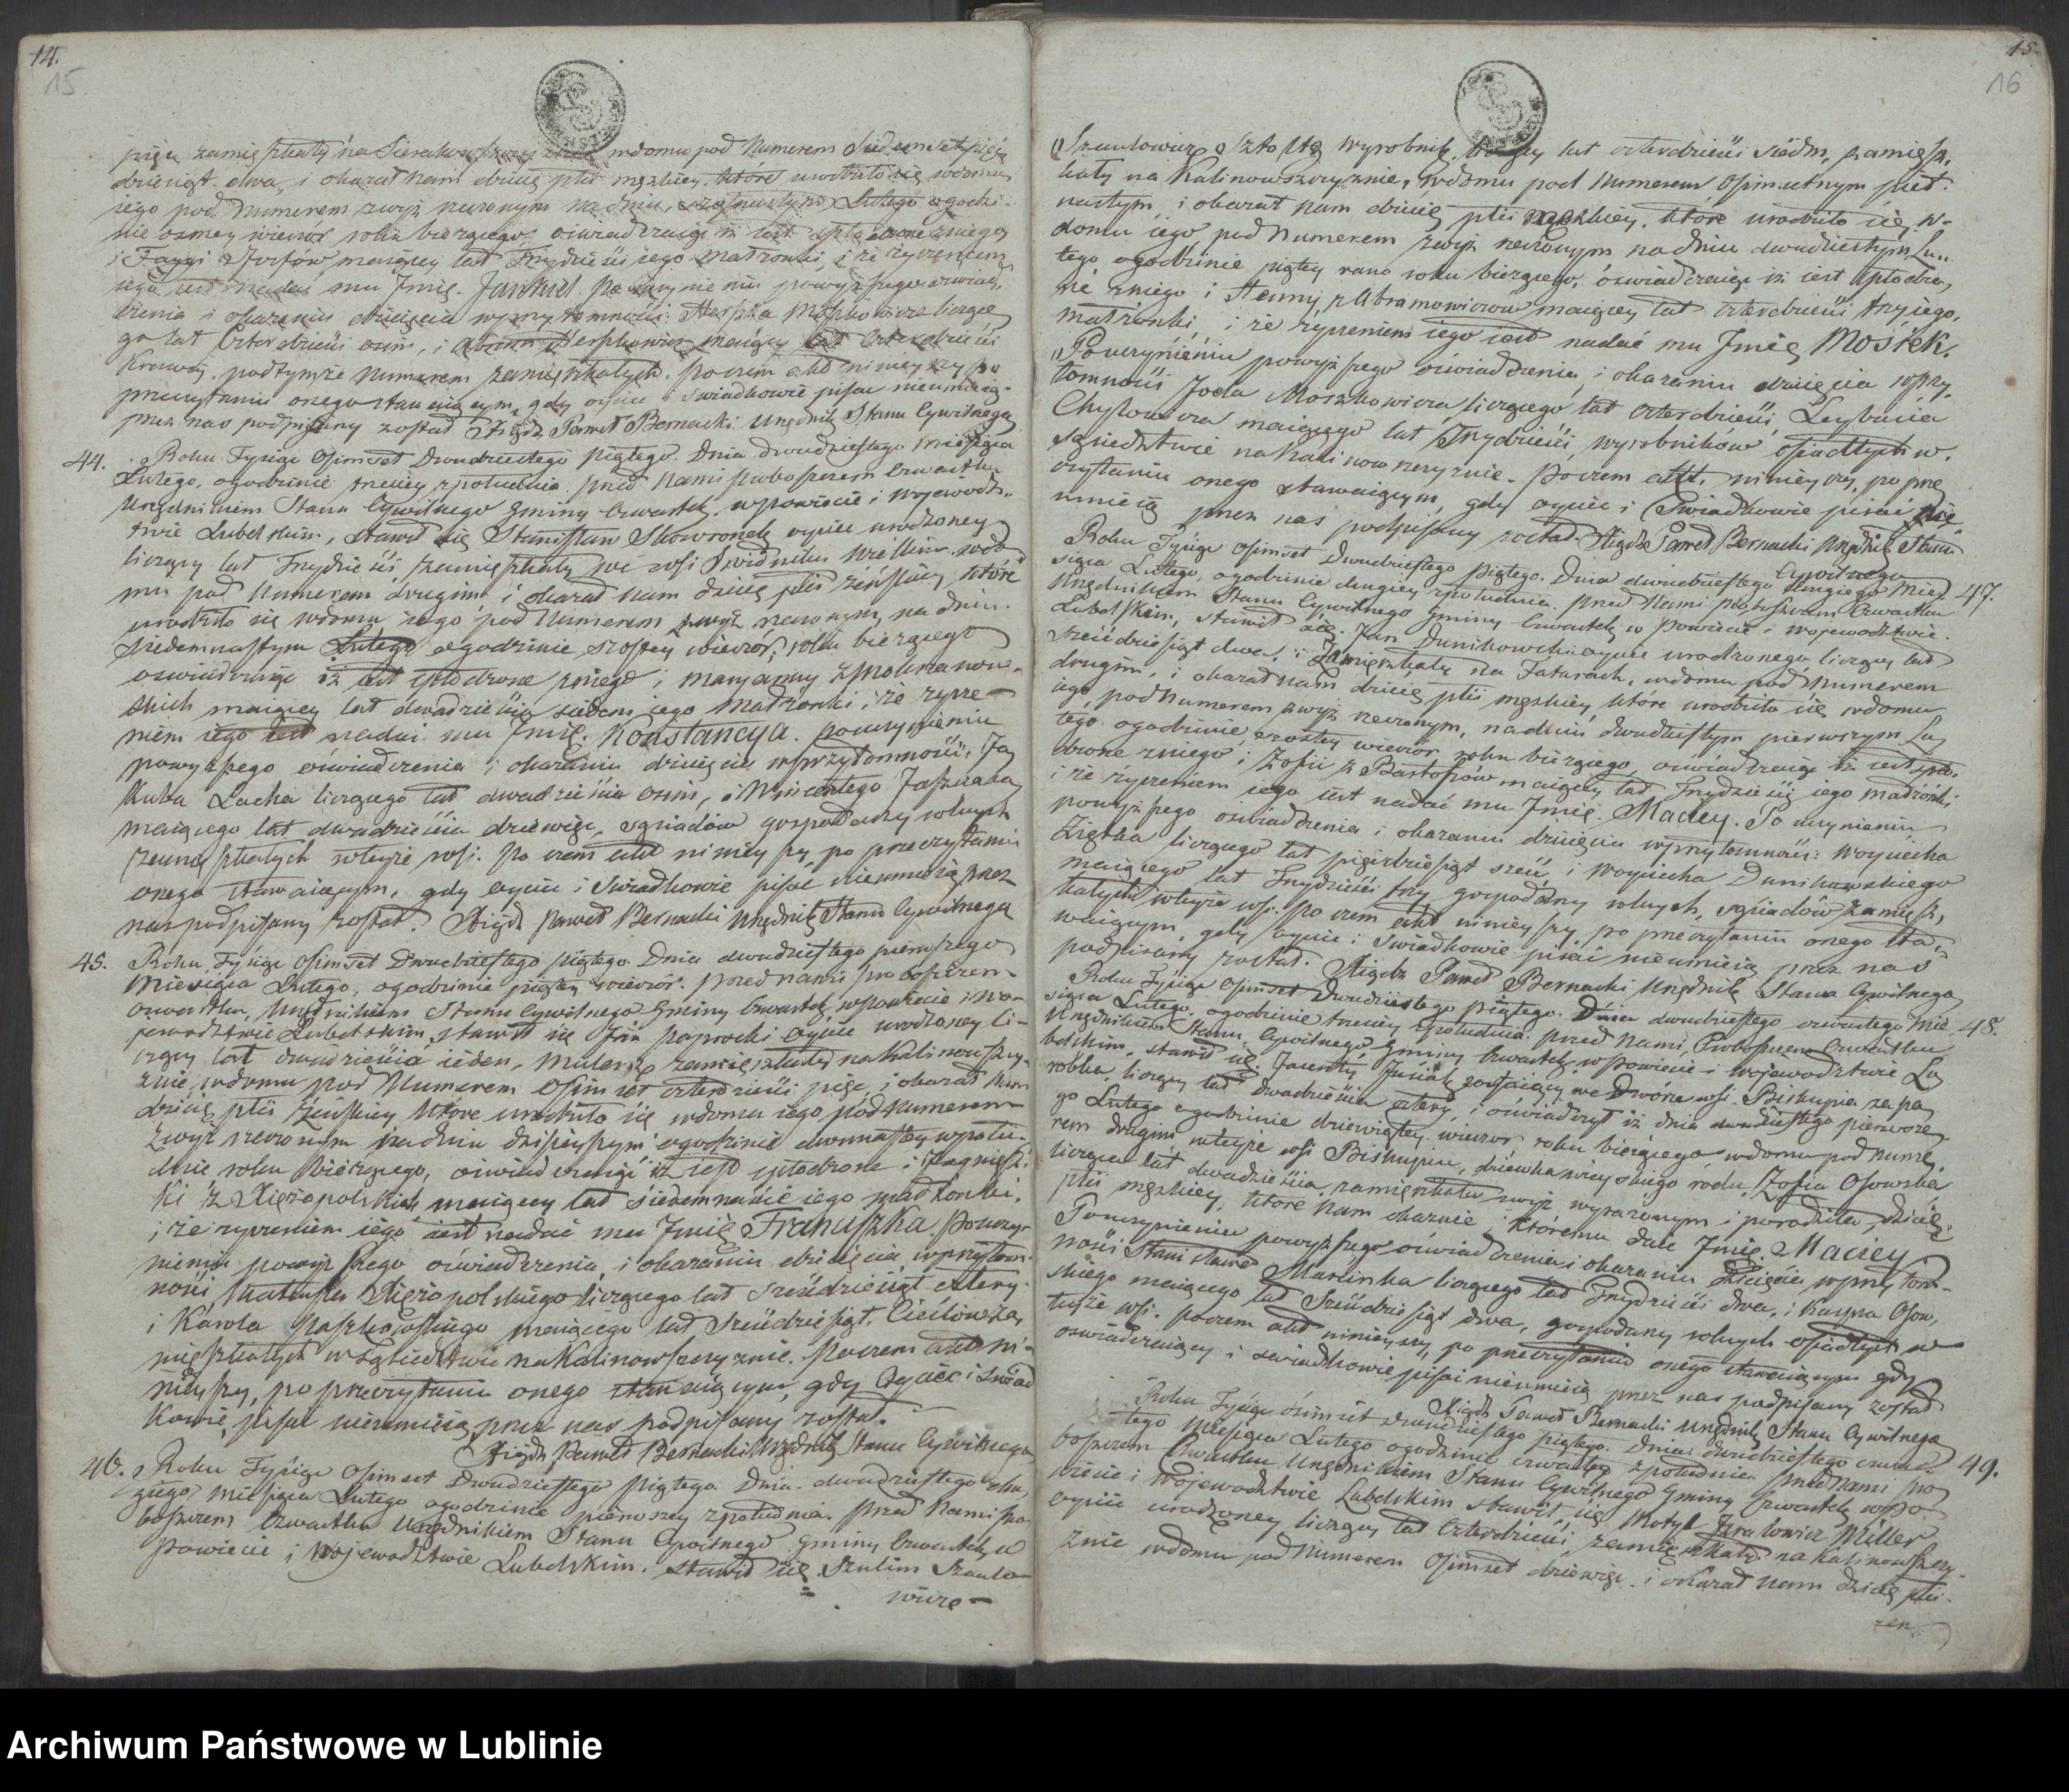 14.
15
pięć zamięszkały na Sierakowszczyznie wdomu pod Numerem Siedemset pięć
dziesiąt dwa, i okazał Nam dziecię płci męzkiey, które urodziło się wdomu
iego pod Numerem zwyż rzeczonym na dniu Lutego ogodzi-
nie osmey wieczór roku bieżącego oswiadczaiąc iż iest spłodzone zniego
i Faygi Josfów maiącey lat Trzydzieści iego małżonki, i że życzeniem
iego iest nadać mu Jmię. Jankiel. Po uczynieniu powyższego oświad-
czenia i okazaniu dziecięcia wprzytomności: Herszka Moszkowicza liczące
go lat Czterdzieści osim, i Herszkowicz maiący lat Czterdzieści
Krawcy. podtymże Numerem zamięszkałych. poczem akt ninieyszy po
przeczytaniu onego stawaiącym, gdy oyciec i swiadkowie pisac nieumieią
przez nas podpisany został Xiądz Paweł Bernacki Urzędnik Stanu Cywilnego
44. Roku Tysiąc Osimset Dwudziestego piątego. Dnia dwudziestego Miesiąca
Lutego, ogodzinie trzeciey zpołudnia. przed Nami proboszczem Czwartku
Urzędnikiem Stanu Cywilnego Gminy Czwartek, wpowiecie i wojewódz-
twie Lubelskim, stawił się Stanisław Skowronek oyciec urodzoney
liczący lat Trzydzieści, zamięszkały we wsi Swidniku Wielkim wdo
mu pod Numerem drugim i okazał nam dziecię płci żeńskiey które
urodziło się wdomu iego pod Numerem zwyż rzeczonym, na dniu
siedemnastym Lutego ogodzinie szóstey wieczór, roku bieżącego
oświadczaiąc iż iest spłodzone zniego i Maryanny z
skich maiącey lat dwadzieścia siedem iego małżonki i że życze-
niem iego iest nadać mu Jmię. Konstancya. po uczynieniu
powyższego oświadczenia i okazaniu dziecięcia wprzytomności, Ja
Kuba Lacha liczącego lat dwadzieścia osim, i Wincentego Jaszczaka
maiącego lat dwadzieścia dziewięć, sąsiadów gospodarzy rolnych
zamięszkałych wteyże wsi. po czem akt ninieyszy, po przeczytaniu
onego stawaiącym, gdy oyciec i Swiadkowie pisac nieumieią przez
nas podpisany został. Xiądz Paweł Bernacki Urzędnik Stanu Cywilnego
45. Roku Tysiąc Osimset Dwudziestego piątego. Dnia dwudziestego pierwszego
Miesiąca Lutego, ogodzinie piątey wieczór. przed nami proboszczem
Czwartku, Urzędnikiem Stanu Cywilnego Gminy Czwartek, wpowiecie i Wo-
jewodztwie Lubelskim, stawił się Jan Paprocki Oyciec urodzoney li-
czący lat dwadzieścia ieden, Mularz, zamięszkały na Kalinowszczy-
znie, wdomu pod Numerem Osimset czterdzieści pięć, i okazał Nam
dziecię płci żeńskiey które urodziło się wdomu iego pod Numerem
zwyż rzeczonym na dniu dzisieyszym ogodzinie dwunastey wpołu-
dnie roku bieżącego, oświadczaiąc iż iest spłodzone i zAgniesz-
ki z Xięzopolskich maiącey lat siedemnaście iego małżonki.
i że życzeniem iego iest nadać mu Jmię Franciszka. Po uczy-
nieniu powyższego oświadczenia i okazaniu dziecięcia wprzytom-
ności, Mateusza Xięzopolskiego liczącego lat sześćdziesiąt cztery
i Karola Paszkowskiego maiącego lat Sześćdziesiąt. Cieslów za
mięszkałych w Sąsiedztwie na Kalinowszczyznie. Poczem akt ni-
nieyszy, po przeczytaniu onego stawaiącym, gdy Oyciec i Swiad
kowie, pisać nieumieią przez nas podpisany został.
Xiądz Paweł Bernacki Urzędnik Stanu Cywilnego
46. Roku Tysiąc Osimset Dwudziestego piątego. Dnia dwudziestego dru
giego Miesiąca Lutego ogodzinie pierwszey zpołudnia. przed Nami pro
boszczem Czwartku Urzędnikiem Stanu Cywilnego Gminy Czwartek, w
powiecie i Wojewodztwie Lubelskim. stawił się Szulim Szaulo-
wicz
15.
16
Szaulowicz Szto Wyrobnik. liczący lat czterdzieści siedm, zamięsz,
kały na Kalinowszczyznie, wdomu pod Numerem Osimsetnym pięt-
nastym, i okazał Nam dziecię płci męzkiey, które urodziło się w-
domu iego pod Numerem zwyż rzeczonym na dniu dwudziestym Lu-
tego ogodzinie piątey rano roku bieżącego, oświadczaiąc iż iest spłodzo,
ne zniego i Hanny zAbramowiczów maiącey lat czterdzieści trzy iego,
małżonki, i że życzeniem iego iest nadać mu Jmię Mośiek.
Pouczynieniu powyższego oświadczenia, i okazaniu dziecięcia wprzy
tomności Joela Moszkowicza liczącego lat czterdzieści, Leybusia
Chylowicza maiącego lat Trzydzieści, wyrobników osiadłych w
sąsiedztwie na Kalinowszczyznie. Poczem akt, ninieyszy, po prze
czytaniu onego stawaiącym, gdy oyciec i Swiadkowie pisać nie
umieią przez nas podpisany został. Xiądz Paweł Bernacki Urzędnik Stanu
Cywilnego
47. Roku Tysiąc Osimset Dwudziestego Piątego. Dnia dwudziestego drugiego Mie
siąca Lutego, ogodzinie drugiey zpołudnia. przed Nami proboszczem Czwartku
Urzędnikiem Stanu Cywilnego Gminy Czwartek, w Powiecie i Wojewodztwie
Lubelskim, stawił się. Jan Dunikowski oyciec urodzonego liczący lat
sześćdziesiąt dwa, i Zamięszkały na Tatarach, wdomu pod Numerem
drugim, i okazał nam dziecię płci męskiey które urodziło się wdomu
iego pod Numerem zwyż rzeczonym, nadniu dwudziestym pierwszym Lu
tego ogodzinie szóstey wieczór roku bieżącego, oświadczaiąc iż iest spło,
dzone zniego i Zofii z Bartosów maiącey lat Trzydzieści iego małżonki
i że życzeniem iego iest nadać mu Jmię. Maciey. Po uczynieniu
powyższego oświadczenia i okazaniu dziecięcia wprzytomności: Woyciecha
Ziętka liczącego lat pięćdziesiąt sześć i Woyciecha Dunikowskiego
maiącego lat Trzydzieści trzy gospodarzy rolnych, sąsiadów zamięsz,
kałych wteyże wsi. po czem akt ninieyszy po przeczytaniu onego sta,
waiącym, gdy oyciec i Swiadkowie pisać nieumieią przez nas
podpisany został. Xiądz Paweł Bernacki Urzędnik Stanu Cywilnego
48. Roku Tysiąc Osimset Dwudziestego piątego. Dnia dwudziestego czwartego Mie
siąca Lutego ogodzinie trzeciey zpołudnia. przed Nami, Proboszczem Czwartku
Urzędnikiem Stanu Cywilnego Gminy Czwartek, w Powiecie i Wojewodztwie Lu
belskim, stawił się. Jacenty Jusiak zostaiący we Dworze wsi Biskupia za pa
robka, liczący lat Dwadzieścia cztery, i oświadczył iż dnia dwudziestego pierwsze
go Lutego ogodzinie dziewiątey wieczór roku bieżącego wdomu pod Nume,
rem drugim wteyże wsi Biskupiu, dziewka wieyskiego rodu, Zofia Osowska
licząca lat dwadzieścia, zamięszkała zwyż wyrażonym i porodziła dziecię
płci męzkiey, które Nam okazuie i któremu daie Jmię Maciey
Pouczynieniu powyższego oświadczenia i okazaniu Dziecięcia wprzytom-
ności Stanisława Marlinka liczącego lat Trzydzieści dwa, i Kacpra Osow,
skiego maiącego lat Sześćdziesiąt dwa, gospodarzy rolnych osiadłych w
teyże wsi. poczem akt ninieyszy, po przeczytaniu onego stawaiącym gdy
oświadczaiący i swiadkowie pisać nieumieią przez nas podpisany został
Xiądz Paweł Bernacki Urzędnik Stanu Cywilnego
49. Roku Tysiąc Osimset dwudziestego piątego. Dnia dwudziestego czwar
tego Miesiąca Lutego ogodzinie czwartey zpołudnia. przed Nami Pro
boszczem Czwartku Urzędnikiem Stanu Cywilnego Gminy Czwartek, wpo
wiecie i Wojewodztwie Lubelskim stawił się Motyl Jcralowicz Miller
oyciec urodzoney liczący lat Czterdzieści, zamięszkały na Kalinowszczy-
znie wdomu pod Numerem Osimset dziewięć. i okazał nam dziecię płci
żeń
Archiwum Państwowe w Lublinie